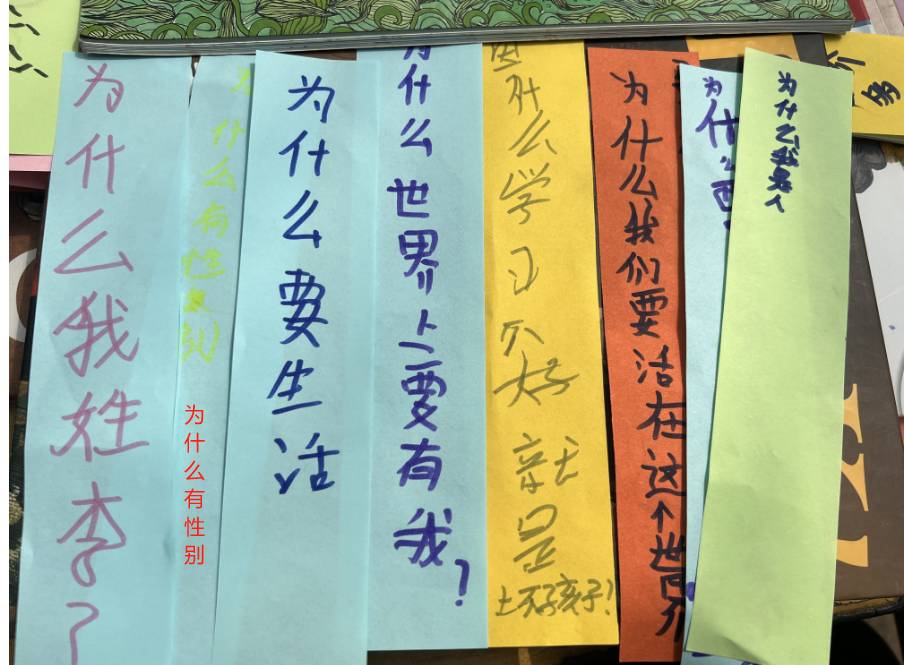 为什么我姓李？
为什么有性别
为什么有性别
为什么要生活
为什么世界上要有我？
什么学习不好就是坏孩子！
为什么我们要活在这个世界
为什么
为什么我是人